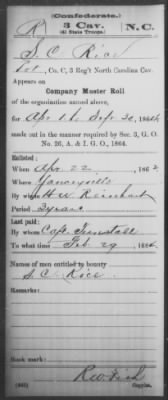 (Confederate.)
R 3 Cav. N.C.
(41 State Troops.)
S. C. Rice
Pvt., Co. C, 3 Reg't North Carolina Cav.
Appears on
Company Muster Roll
of the organization named above,
for Apr. 1 to Sept 30, 1864.
made out in the manner required by Sec. 3, G. O.
No. 26, A. & I. G. O., 1864.
Enlisted:
When Apr. 22, 1862
Where Yanceyville
By whom H. W. Reinhart
Period 3 years
Last paid:
By whom Capt. Tunstall
To what time Feb. 29, 1864
Names of men entitled to bounty
S. C. Rice
Remarks:
Book mark:
Copyist.